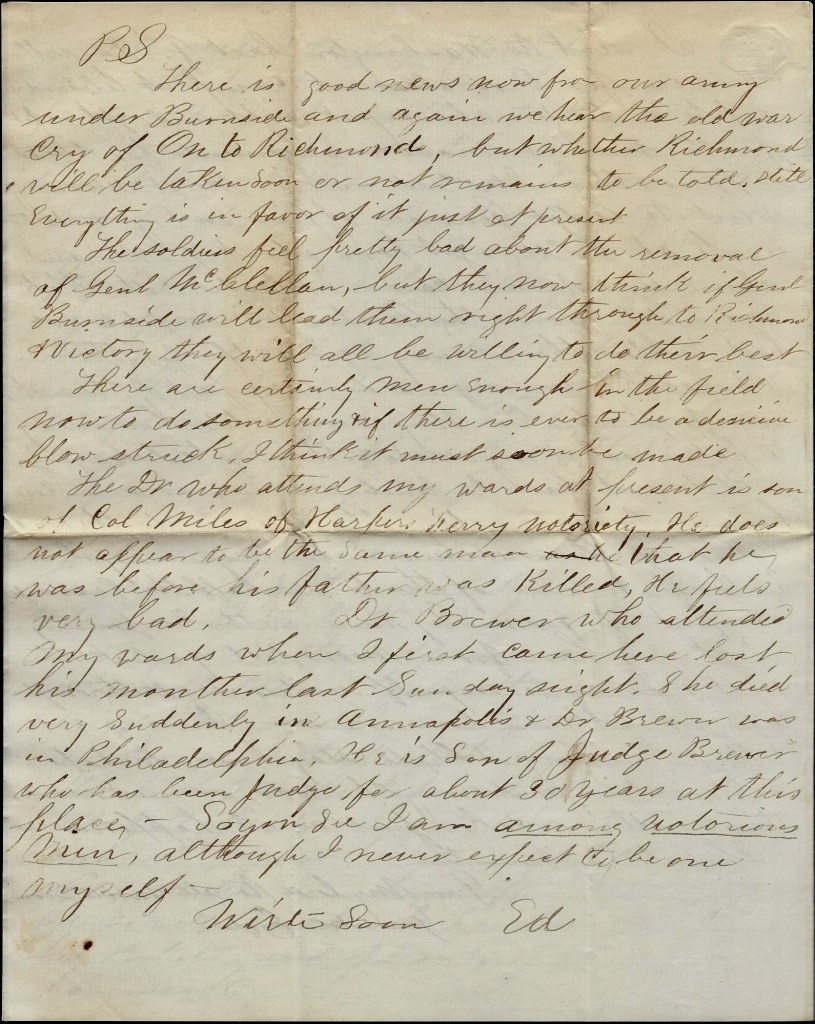 PS
There is good news now fro our army
under Burnside and again we hear the old war
Cry of On to Richmond, but whether Richmond
will be taken soon or not remains to be told. Still
Everything is in favor of it just at present
The soldiers feel pretty bad about the removal
of Genl McClellan, but they now think if Genl
Burnside will lead them right through to Richmond
& Victory they will all be willing to do their best
There are certainly men enough in the field
now to do something & if there is ever to be a decisive
blow struck, I think it must soon be made
The Dr who attends my wards at present is son
of Col Miles of Harpers Ferry notoriety. He does
not appear to be the same man that he
was before his father was Killed, He feels
very bad. Dr Brewer who attended
my wards when I first came here lost
his monther last Sunday night. She died
very Suddenly in Annapolis & Dr Brewer was
in Philadelphia. He is Son of Judge Brewer
who has been Judge for about 30 years at this
place, - So you See I am among notorious
Men, although I never expect to be one
myself -
Write Soon Ed